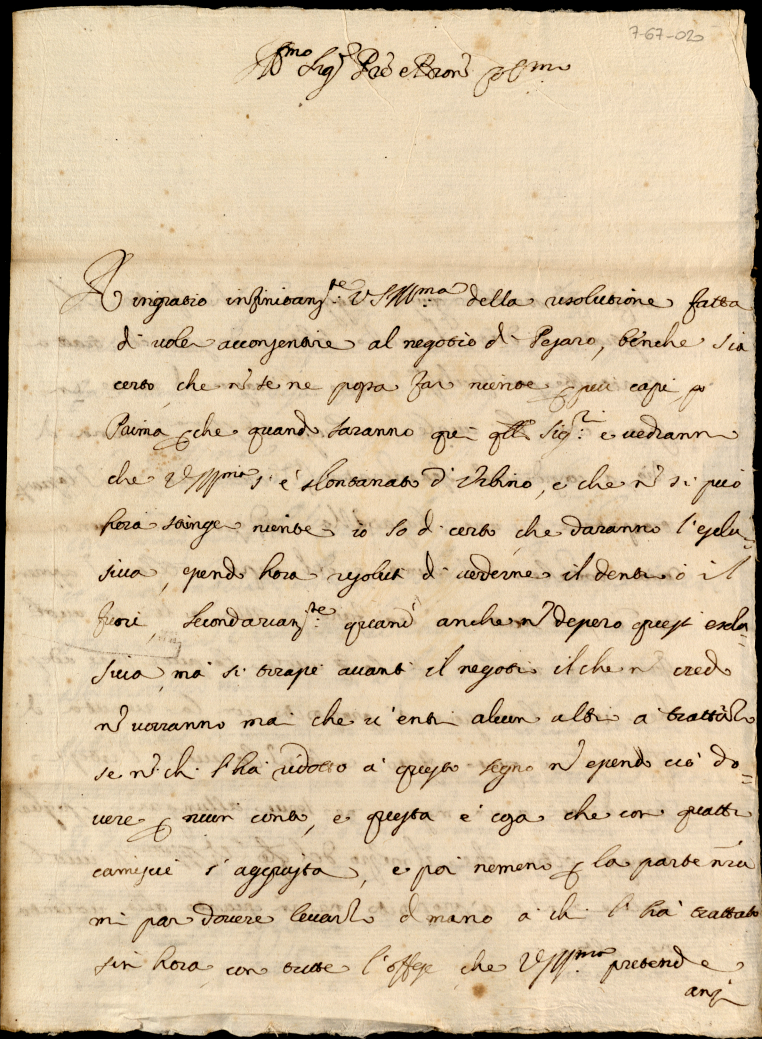 7-67-020
Ill.mo Sig.r P're e P'ron
Ringratio infinitam.te V.S. Ill.ma della resolutione fatta
di voler acconsentire al negotio di Pesaro, benche sia
certo, che n' se ne possa far niente p' più capi, p'
Prima p'che quando saranno qui q'lli sig.ri e vedranno
che V.S. Ill.ma s'è slontanato d'Urbino, e che n' si può
hora stringer niente io so di certo, che daranno l'esclu=
siva, essendo hora risoluti di vederne il dentro ò il
fuori, Secondariam.te quand' anche n' dessero quest' esclu=
siva, mà si tirasse avanti il negotio il che n' credo
n' vorranno mai che c'entri alcun altro à trattarlo
se n' chi l'hà ridotto à questo segno n' essendo ciò do=
vere p' niun conto, e questa è cosa che con quattro
camiscie s'aggiusta, e poi nemeno p' la parte n'ra
mi par dovere levarlo di mano à chi l'hà trattato
sin hora, con tutte l'offese che V.S. Ill.ma pretende
anzi